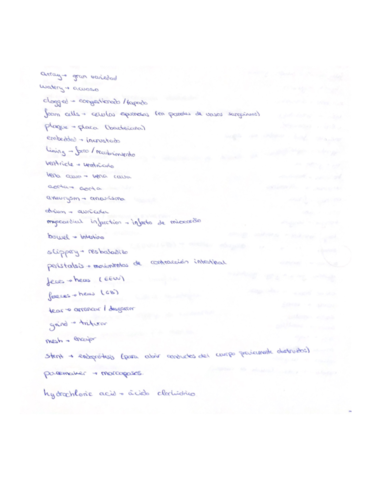 array → gran variedad
watery → acuoso
clogged → congestionado / tapado
foam cells → células espumosas (en paredes de vasos sanguíneos)
plaque → placa (bacteriana)
embedded → incrustado
lining → forro / revestimiento
ventricle → ventrículo
vena cava → vena cava
aorta → aorta
aneurysm → aneurisma
atrium → aurícula
myocardial infarction → infarto de miocardio
bowel → intestino
slippery → resbaladizo
peristalsis → movimientos de contracción intestinal
feces → heces (EEUU)
faeces → heces (GB)
tear → arrancar / desgarrar
grind → triturar
mesh →
stent → endoprótesis (para abrir conductos del cuerpo previamente obstruidos)
pacemaker → marcapasos
hydrochloric acid → ácido clorhídrico